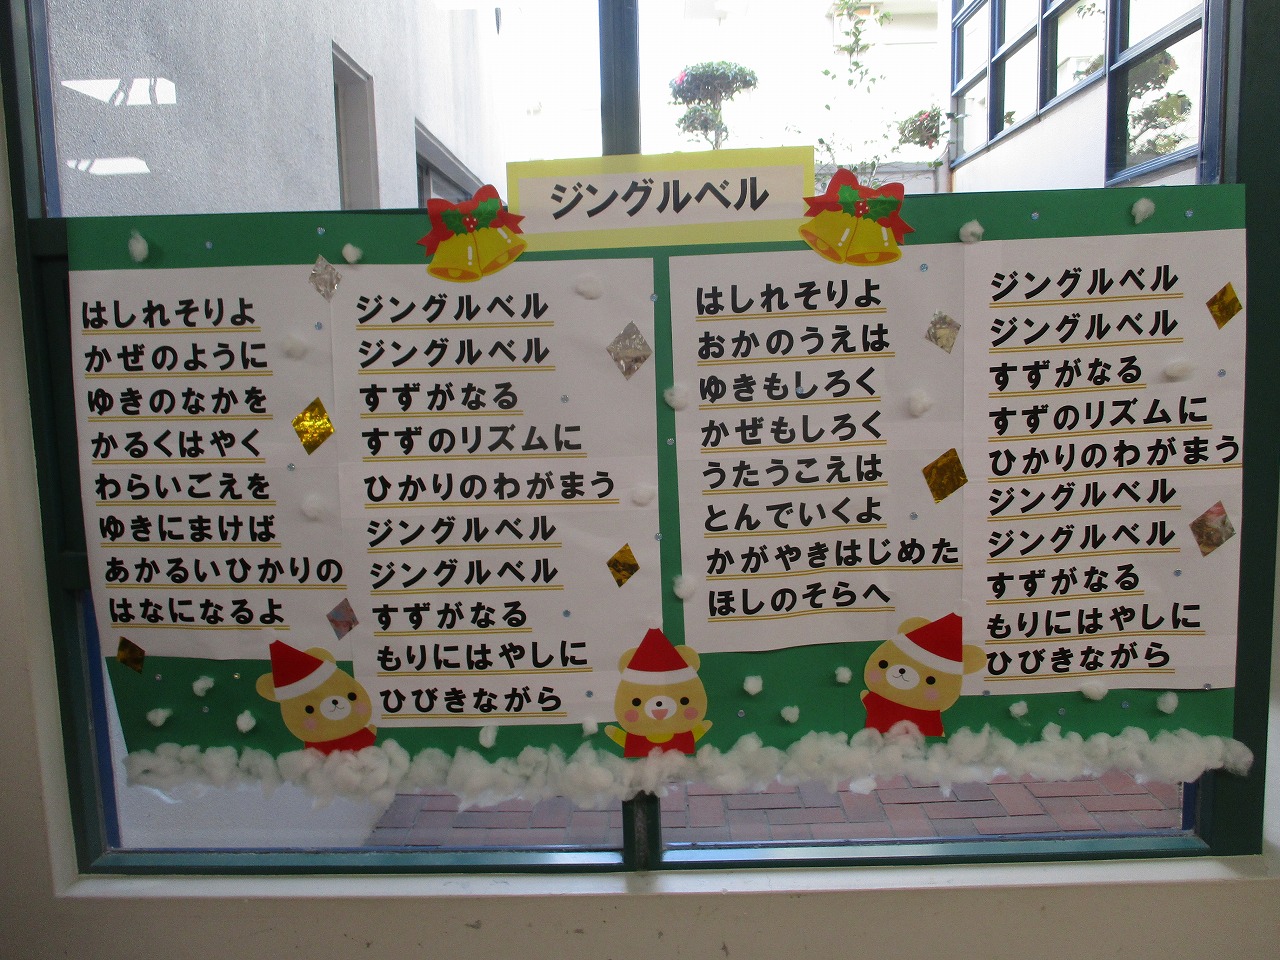 ジングルベル
はしれそりよ
かぜのように
ゆきのなかを
かるくはやく
わらいごえを
ゆきにまけば
あかるいひかりの
はなになるよ
ジングルベル
ジングルベル
すずがなる
すずのリズムに
ひかりのわがまう
ジングルベル
ジングルベル
すずがなる
もりにはやしに
ひびきながら
はしれそりよ
おかのうえは
ゆきもしろく
かぜもしろく
うたうこえは
とんでいくよ
かがやきはじめた
ほしのそらへ
ジングルベル
ジングルベル
すずがなる
すずのリズムに
ひかりのわがまう
ジングルベル
ジングルベル
すずがなる
もりにはやしに
ひびきながら